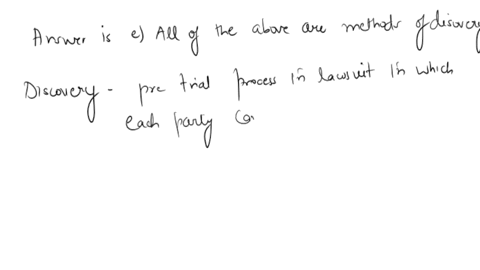 Answer is e) All of the above are methods of discovery
Discovery - pre trial process in lawsuit in which
each party Ca